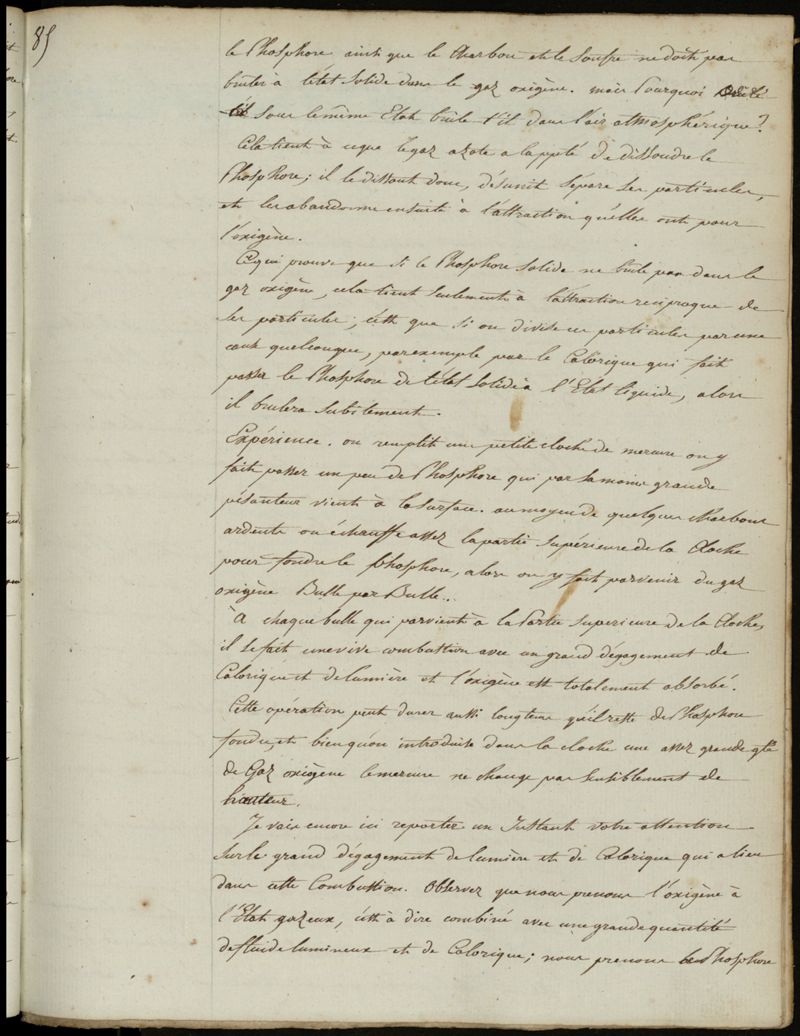 85
le Phosphore ainsi que le Charbon et le Soufre ne doit pas
bruler à l'état Solide dans le gaz oxigène. mais Pourquoi
Sous le même Etat brûle t'il dans l'air atmosphérique?
Cela tient à ceque le gaz azote a la ppté de dissoudre le
Phosphore; il le dissout donc, désunit Sépare Ses particules,
et les abandonne ensuite à l'attraction qu'elles ont pour
l'oxigène.
Ce qui prouve que Si le Phosphore Solide ne brûle pas dans le
gaz oxigène, cela tient Seulement à l'attraction reciproque de
Ses particules; c'est que Si on divise ces particules par une
cause quelconque, par exemple par le Calorique qui fait
passer le Phosphore de l'état Solide à l'Etat liquide, alors
il brulera Subitement.
Expérience. on remplit une petite cloche de mercure on y
fait passer un peu de Phosphore qui par sa moins grande
pésanteur vient à la Surface. au moyen de quelques charbons
ardents on échauffe assez la partie Supérieure de la Cloche
pour fondre le Phosphore, alors on y fait parvenir du gaz
oxigène Bulle par Bulle.
À chaque bulle qui parvient à la Partie Superieure de la Cloche,
il Se fait une vive combustion avec un grand dégagement de
Calorique et de lumière et l'oxigène est totalement absorbé.
Cette opération peut durer aussi longtems qu'il reste de Phosphore
fondu, et bien qu'on introduise dans la cloche une assez grande qté
de Gaz oxigène le mercure ne change pas Sensiblement de
hauteur.
Je vais encore ici reporter un Instant votre attention
Sur le grand dégagement de lumière et de Calorique qui a lieu
dans cette Combustion. Observez que nous prenons l'oxigène à
l'Etat gazeux, c'est à dire combiné avec une grande quantité
de fluide lumineux et de Calorique; nous prenons le Phosphore